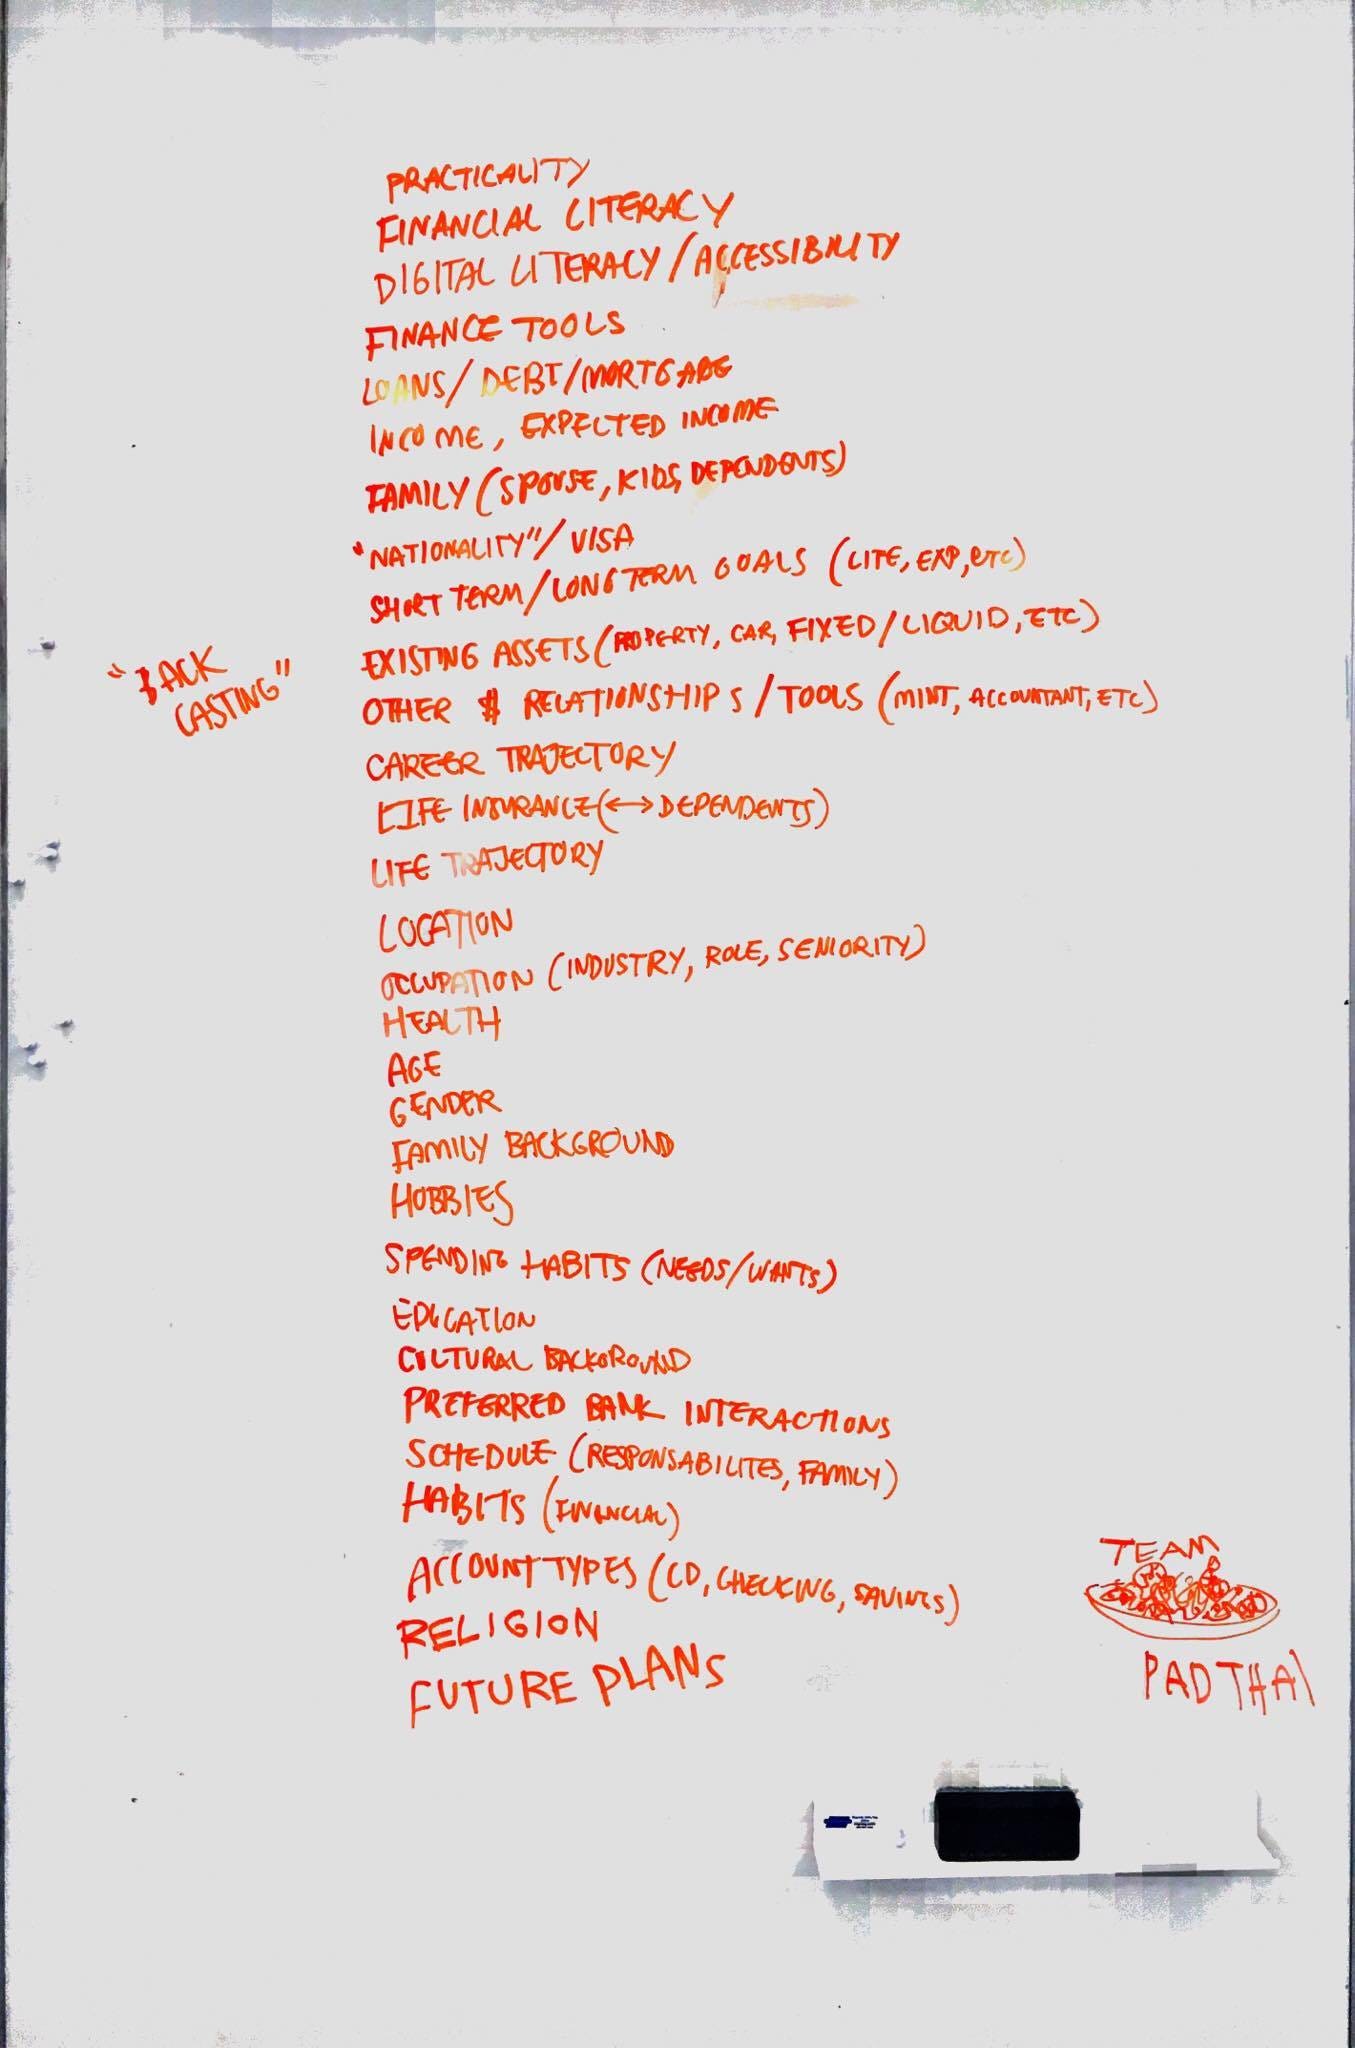 PRACTICALITY
FINANCIAL LITERACY
DIGITAL LITERACY/ACCESSIBILITY
FINANCE TOOLS
LOANS/DEBT/MORTGAGE
INCOME, EXPECTED INCOME
FAMILY (SPOUSE, KIDS, DEPENDENTS)
"NATIONALITY"/VISA
SHORT TERM/LONG TERM GOALS (LIFE, EXP, ETC)
EXISTING ASSETS (PROPERTY, CAR, FIXED/LIQUID, ETC)
"BACK
CASTING"
OTHER $ RELATIONSHIPS/TOOLS (MINT, ACCOUNTANT, ETC)
CAREER TRAJECTORY
LIFE INSURANCE (↔ DEPENDENTS)
LIFE TRAJECTORY
LOCATION
OCCUPATION (INDUSTRY, ROLE, SENIORITY)
HEALTH
AGE
GENDER
FAMILY BACKGROUND
HOBBIES
SPENDING HABITS (NEEDS/WANTS)
EDUCATION
CULTURAL BACKGROUND
PREFERRED BANK INTERACTIONS
SCHEDULE (RESPONSABILITES, FAMILY)
HABITS (FINANCIAL)
ACCOUNT TYPES (CD, CHECKING, SAVINGS)
RELIGION
FUTURE PLANS
TEAM
PAD THAI